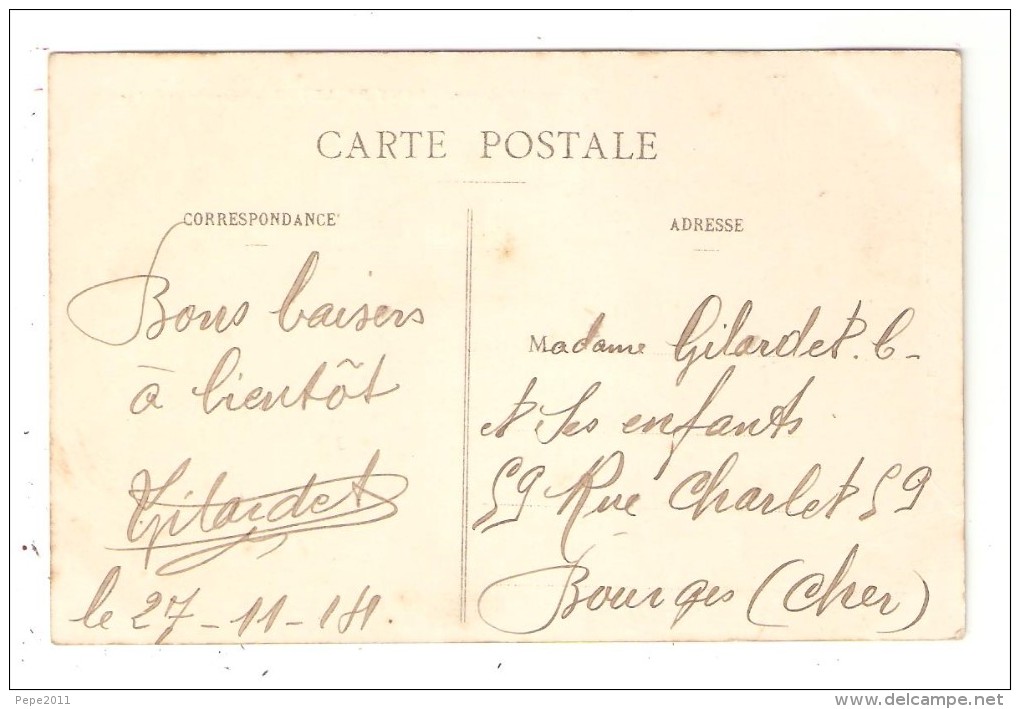 CARTE POSTALE
CORRESPONDANCE
Bons baisers
à bientôt
Gilardet
le 27-11-14.
ADRESSE
Madame Gilardet. C-
et Ses enfants
59 Rue Charlet 59
Bourges (Cher)
Pepe2011
www.delcampe.net